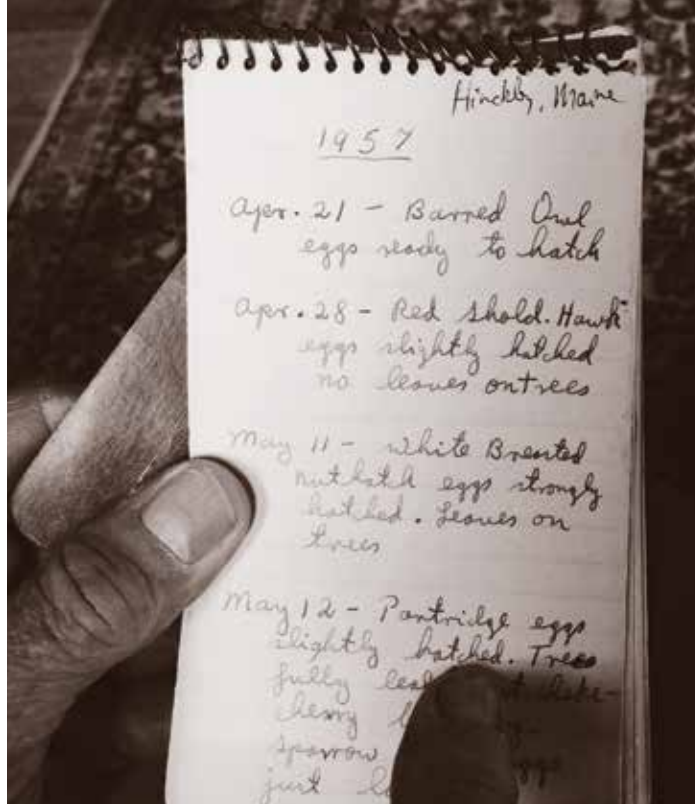 Hinckly, Maine
1957
Apr. 21 - Barred Owl
eggs ready to hatch
Apr. 28 - Red Shold. Hawk
eggs slightly hatched
no leaves on trees
May 11 - White Breasted
nuthatch eggs strongly
hatched. Leaves on
trees
May 12 - Partridge eggs
slightly hatched. Trees
fully
cherry
sparrow
just